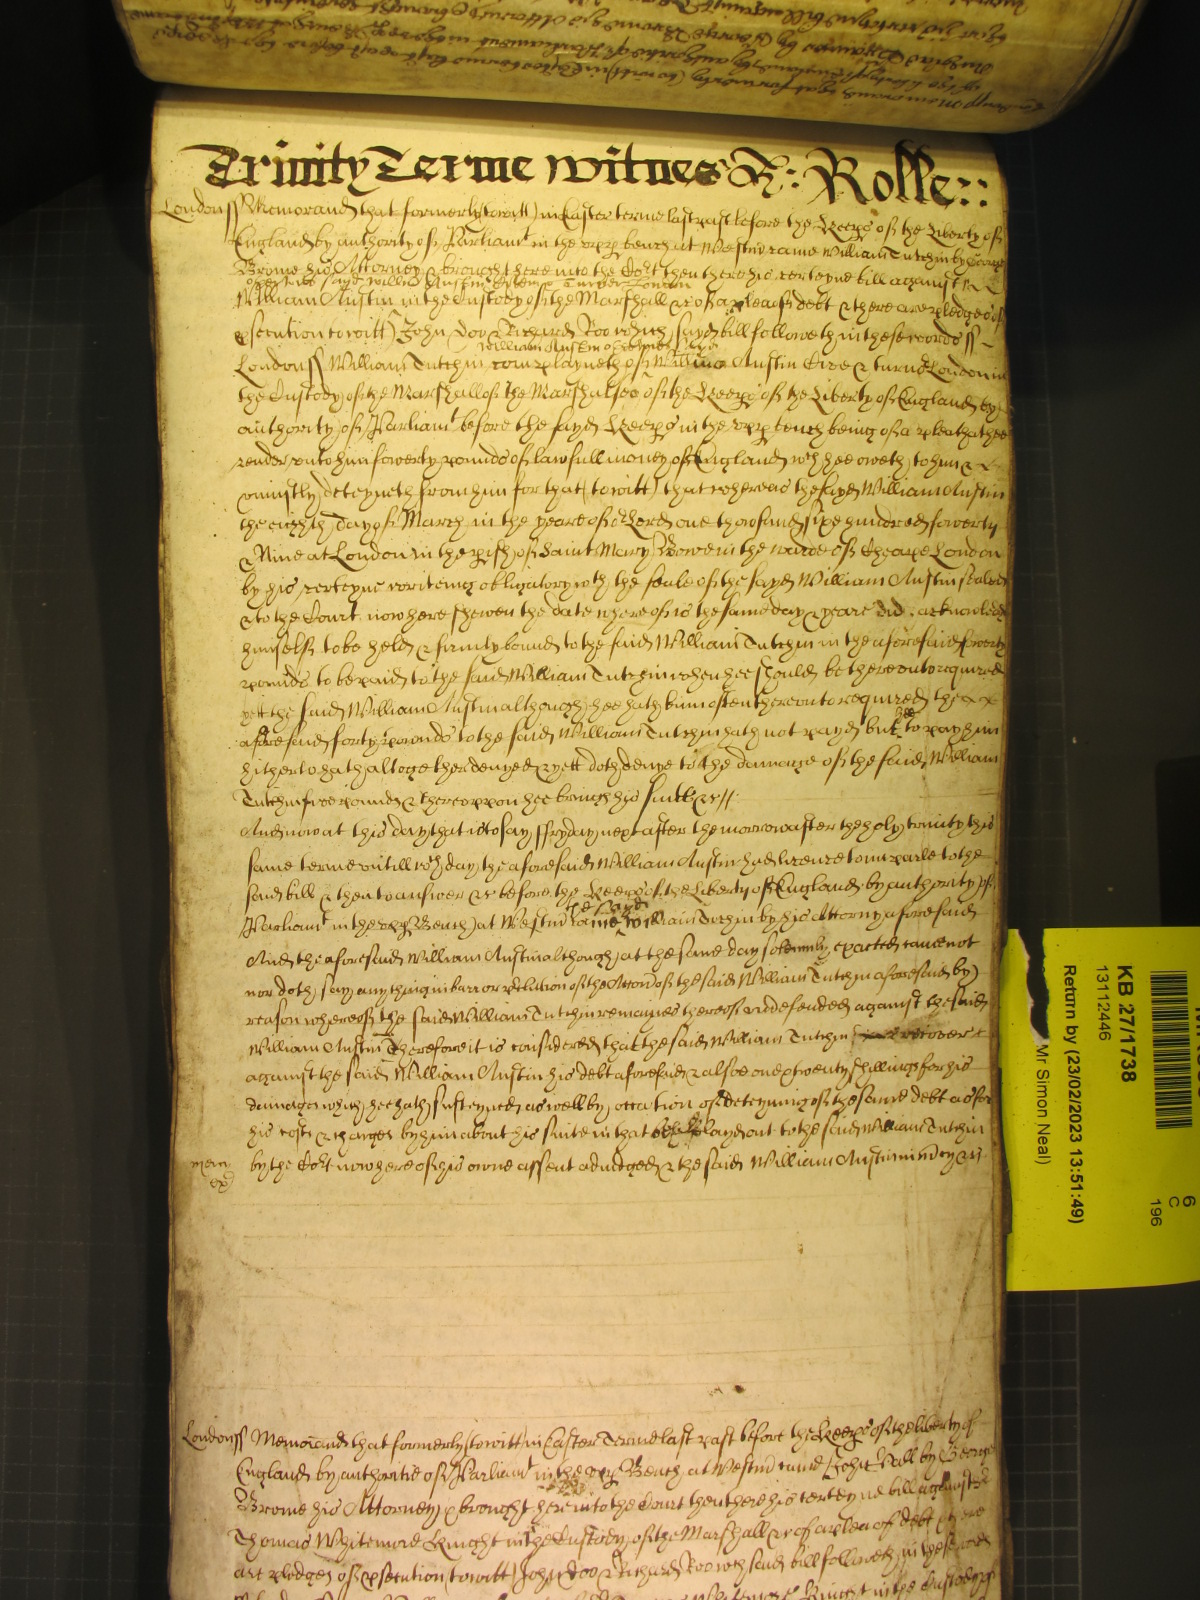 Trinity Terme witnes H: Rolle::
Londonss Memorand that formerly (to witt) in Easter terme last past before the Keeps of the Liberty of
England by authority of Parliamt in the upp bench at Westm came William Tutchin by George
Brome his Attorney & brought here into the Cort then there his certeyne bill against
William Austin in the Custody of the Marshall &c of a plea of debt & there are pledges of
psecution to witt John Doo & Richard Roo which sayd bill followeth in these words ss
William Austin otherwise sayd
Londonss William Tutchin complayneth of William Austin Citiz & turner London in
the Custody of the Marshall of the Marshalsea of the Keeps of the Liberty of England by
authority of Parliamt before the sayd Keeps in the upp bench being of a plea that hee
render unto him fowerty pounds of lawfull money of England wch hee oweth to him &
uniustly deteyneth from him for that (to witt) that whereas the sayd William Austin
the eighth day of March in the yeare of or Lord one thowsand sixe hundred fowerty
& Nine at London in the pish of Saint Mary Bowe in the warde of Cheape London
by his certeyne writeing obligatory wth the seale of the sayd William Austin sealed
& to the Court now here shewen the date whereof is the same day & yeare did acknowledge
himselfe to be held & firmly bound to the said William Tutchin in the aforesaid fowerty
pounds to be paid to the said William Tutchin when hee should be thereunto required
yett the said William Austin although hee hath binn often thereunto required the
aforesaid forty pounds to the said William Tutchin hath not payd but to pay him
hee
hitherto hath altogether denyed & yett doth denye to the damage of the said William
Tutchin five pounds & thereuppon hee brings his suite &c //
And now at this day that is to say ffryday next after the morrow after the holy trinity this
same terme untill wch day the aforesaid William Austin had licence to imparle to the
said bill & then to answer &c before the Keeps of the Liberty of England by authority of
Parliamt in the upp Bench at Westm came William Tutchin by his Attorny aforesaid
the sayd
And the aforesaid William Austin although at the same day solemnly exacted came not
nor doth say any thing in barr or pclution of the Accon of the said William Tutchin aforesaid by
reason whereof the said William Tutchin remaines thereof undefended against the said
William Austin Therefore it is considered that the said William Tutchin recover
against the said William Austin his debt aforesaid & alsoe one & twenty shillings for his
damages which hee hath susteyned as well by occation of deteyning of the same debt as for
his costs & charges by him about his suite in that layd out to the said William Tutchin
by the Cort now here of his owne assent adiudged & the said William Austin in mcy &c
mercy
Londonss Memorand that formerly (to witt) in Easter Terme last past before the Keeps of the liberty of
England by authoritie of Parliamt in the upp Bench at Westm came John Vall by George
Brome his Attorney & brought here into the Court then there his certeyne bill against
Thomas Whitmore Knight in the Custody of the Marshall &c of a plea of debt & there
are pledges of psecution (to witt) John Doo & Richard Roo wch said bill followeth in these words
Knight in the Custody of
KB 27/1738
13112446
Return by (23/02/2023 13:51:49)
Mr Simon Neal)
6
C
196